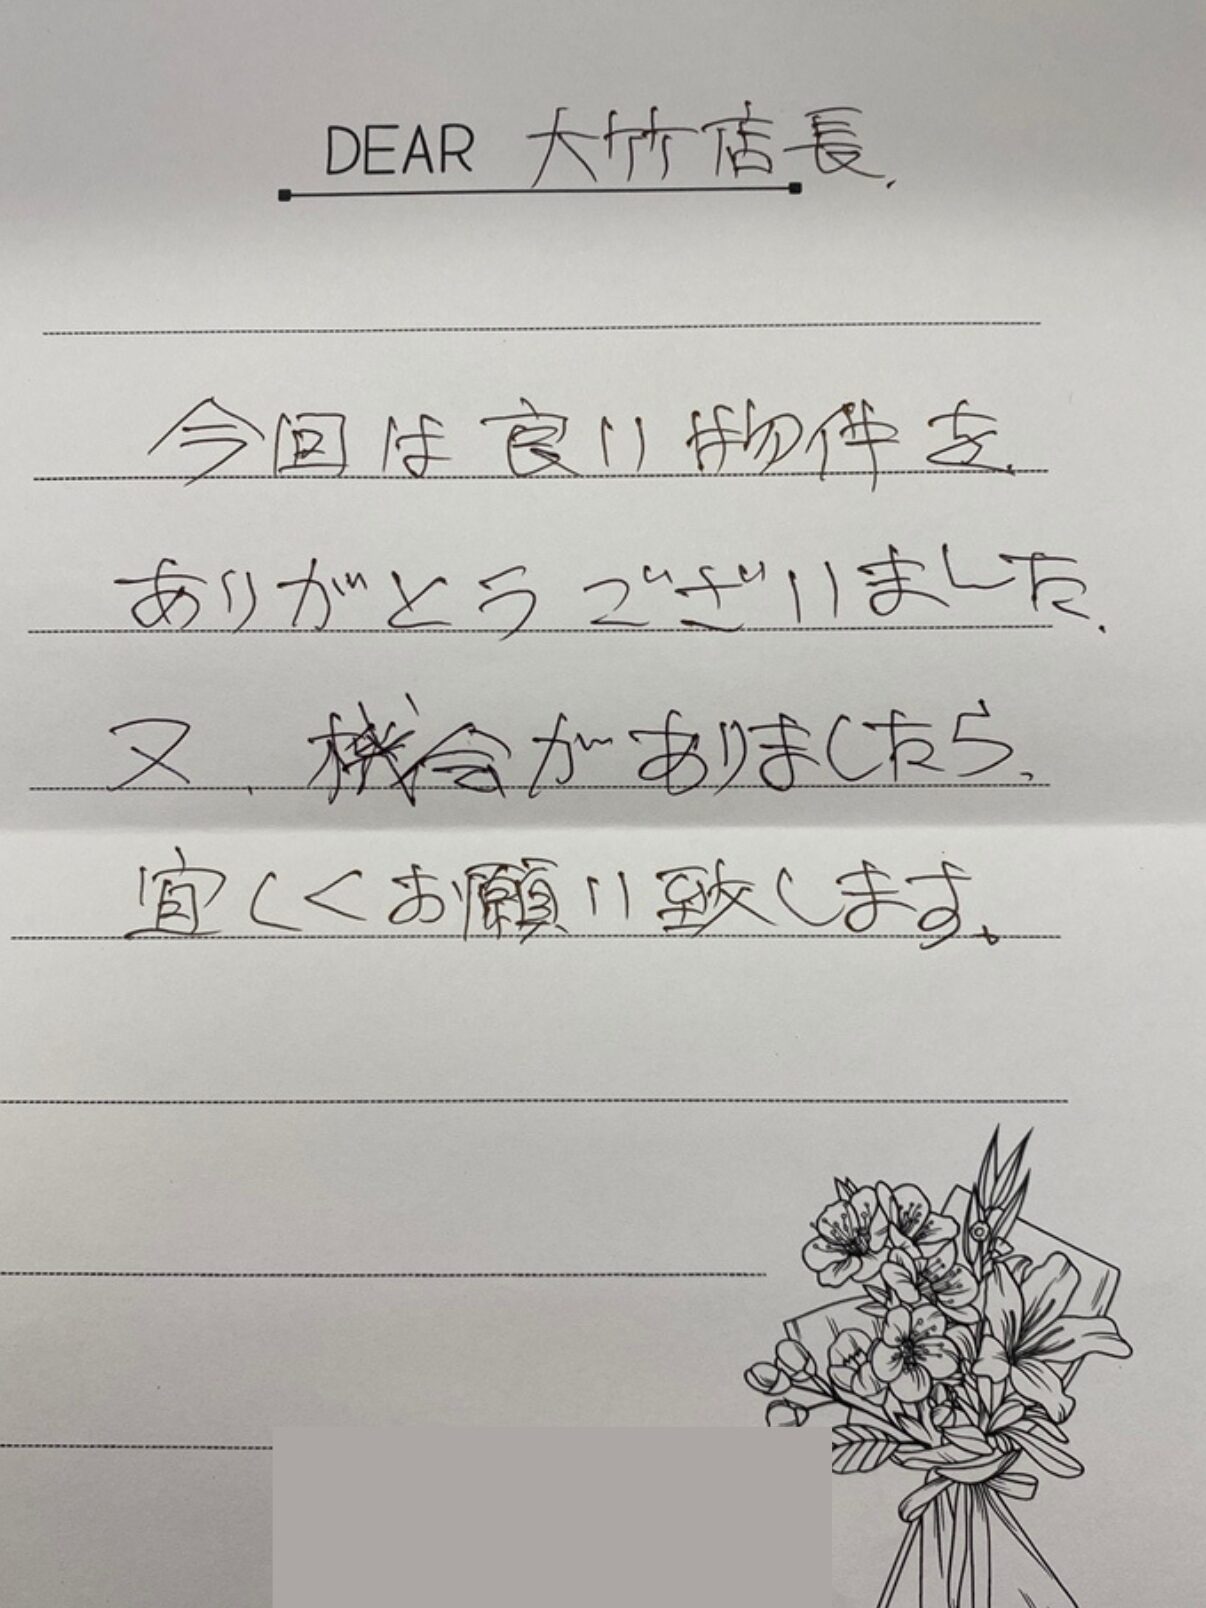 DEAR 大竹店長.
今回は良い物件を、
ありがとうございました.
又、機会がありましたら、
宜しくお願い致します。